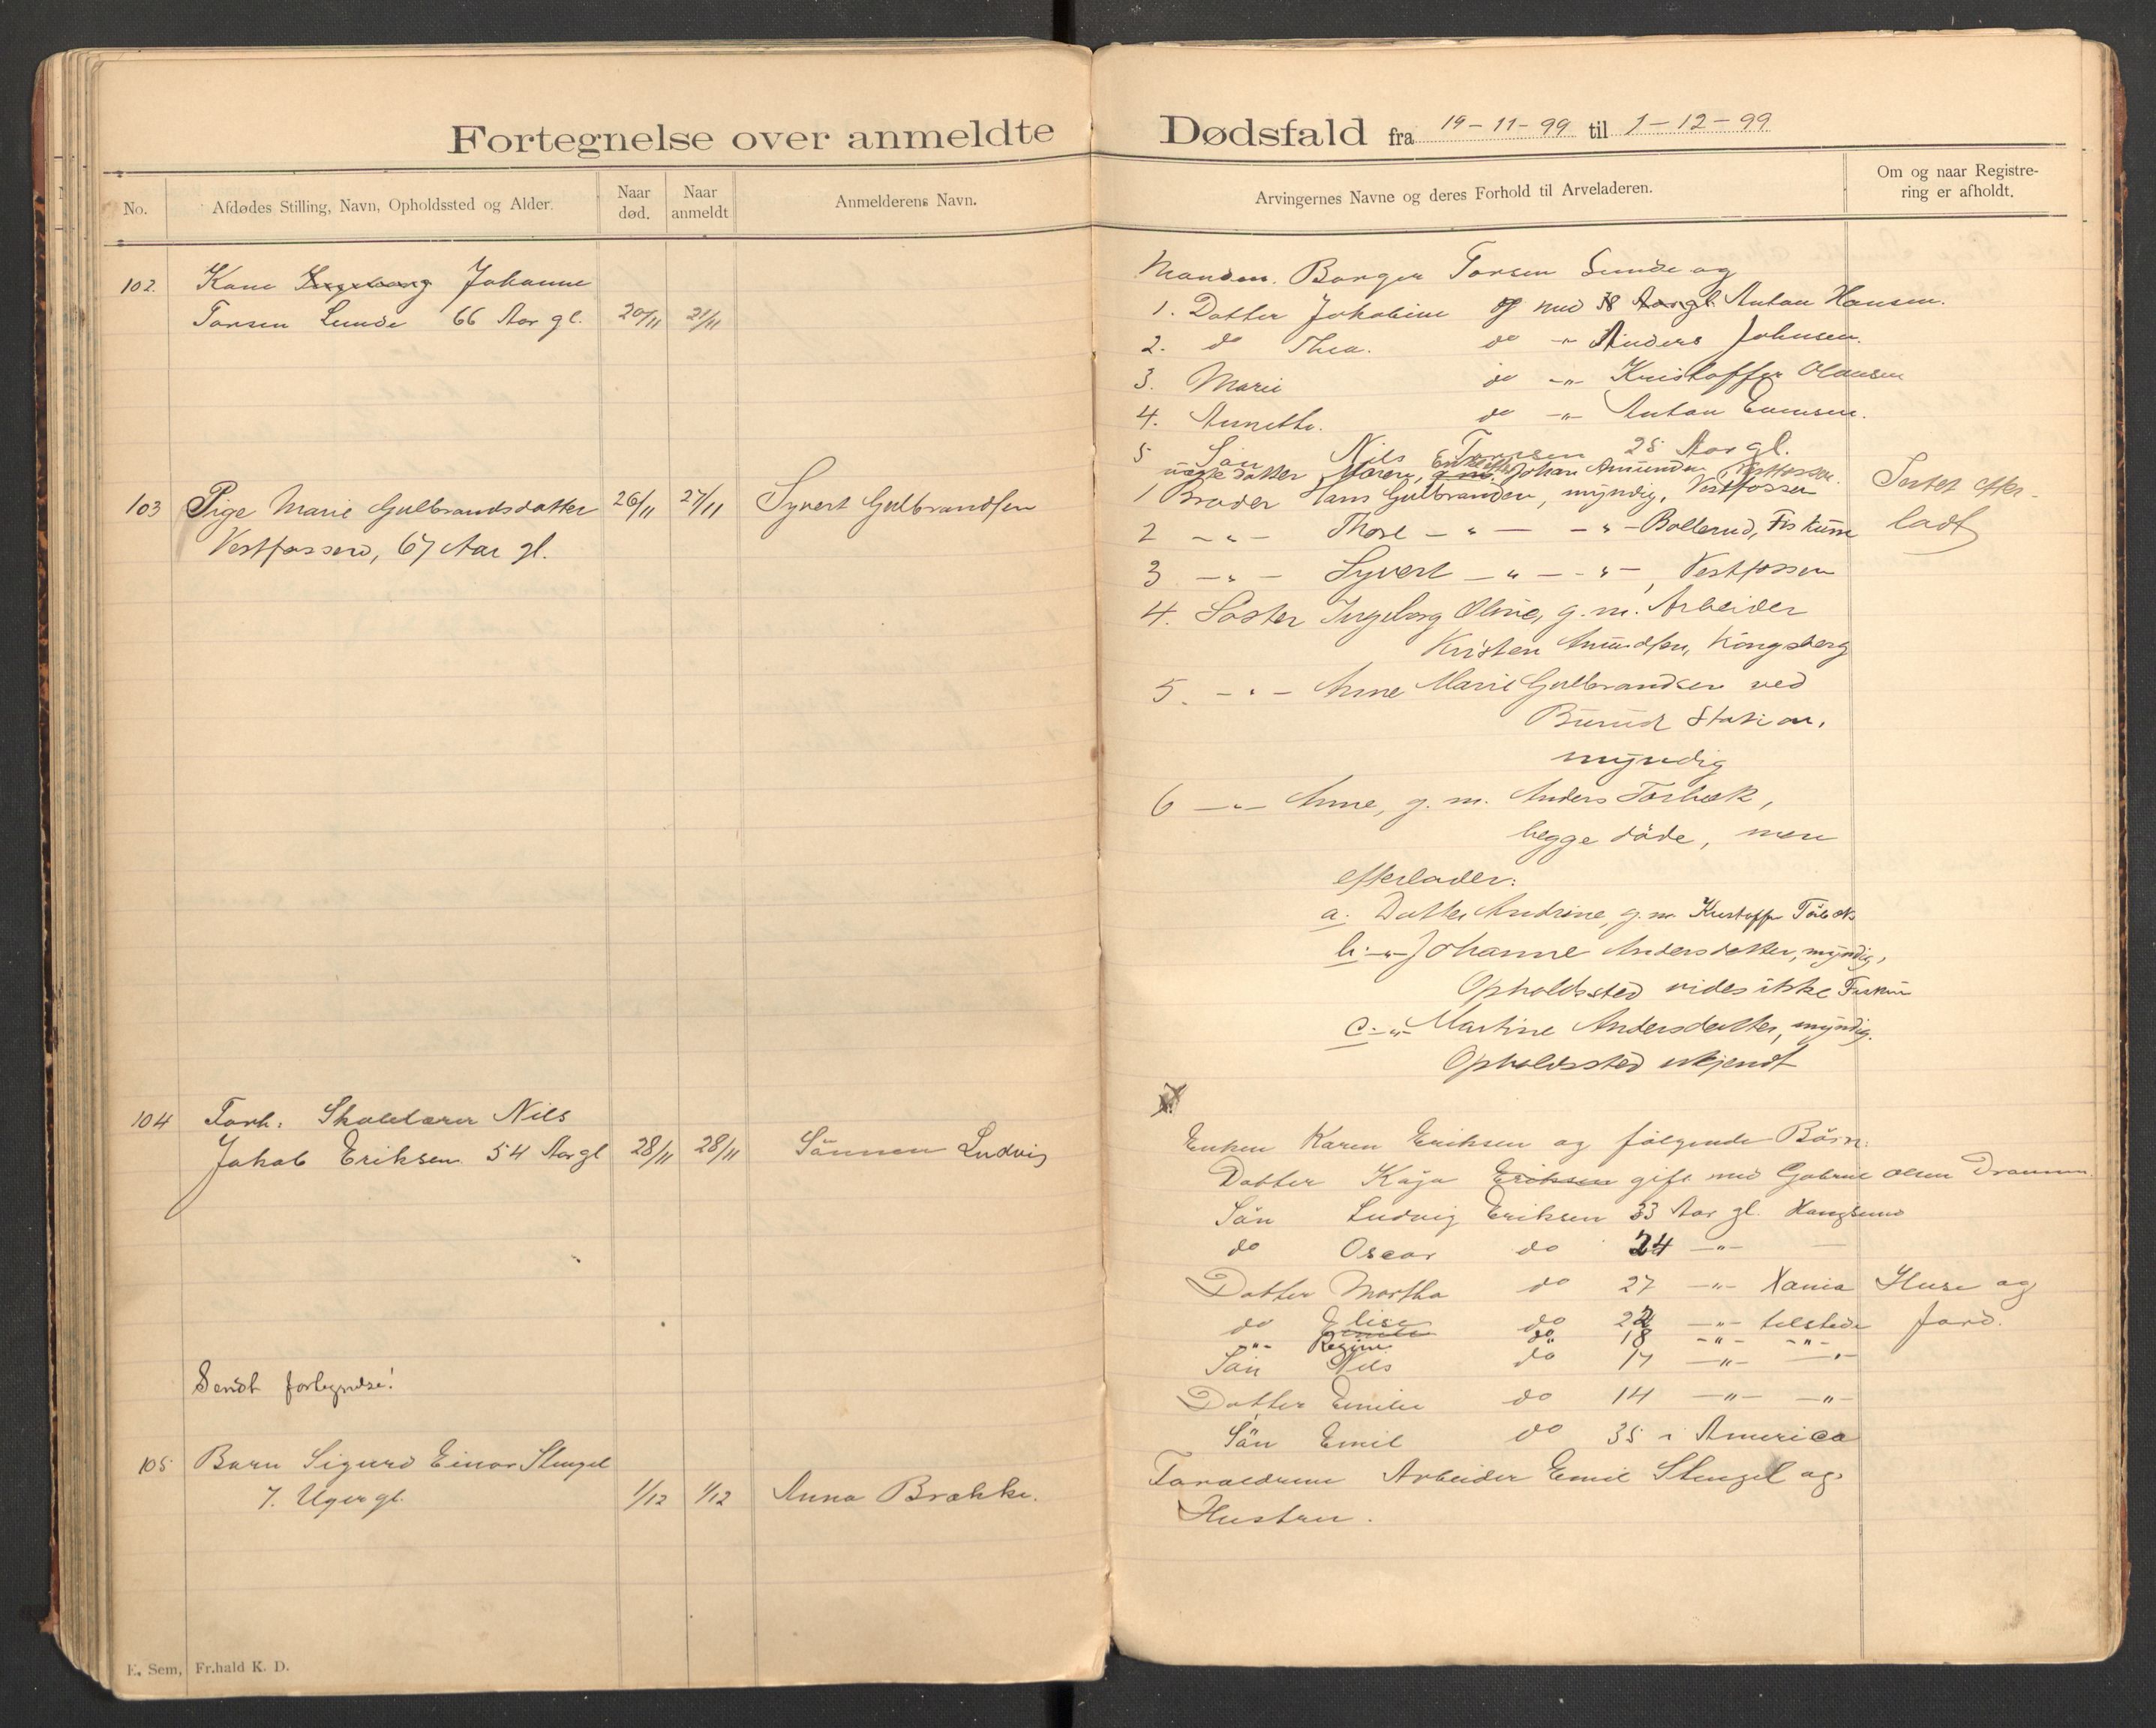 Fortegnelse over anmeldte Dødsfald fra 19-11-99 til 1-12-99
No.
Afdødes Stilling, Navn, Opholdssted og Alder.
Naar død.
Naar anmeldt
Anmelderens Navn.
Arvingernes Navne og deres Forhold til Arveladeren.
Om og naar Registre-
ring er afholdt.
102. Kone Ingeborg Johanne
Torsen Lunde 66 Aar gl. 20/11 21/11
Manden. Borger Torsen Lunde og
1. Datter Jakobine gf med 38 Aar gl. Anton Hansen.
2. do Thea. do -"- Anders Johnsen.
3. Marie do -"- Kristoffer Olausen
4. Annethe. do -"- Anton Evensen.
5 Sön Nils Torsen 28 Aar gl.
103 Pige Marie Gulbrandsdatter 26/11 27/11 Syvert Gulbrandsen
Vestfossen, 67 Aar gl.
uægte datter Maren, g. m. Enke efter Johan Amundsen, Vestfossen.
1 Broder Hans Gulbrandsen, myndig, Vestfossen
2 -"- Thore -"- -"- Bollerud, Fiskum
3 -"- Syvert -"- -"-, Vestfossen
4. Søster Ingeborg Oline, g. m. Arbeider
Kristen Amundsen, Kongsberg
5. -"- Anne Marie Gulbrandsen ved
Burud Station,
myndig
6 -"- Anne, g. m. Anders Torbæk,
begge døde, men
efterlader:
a. Datter Andrine, g. m. Kristoffer Torbæk
b. -"- Johanne Andersdatter, myndig,
Opholdssted vides ikke Fiskum
c. -"- Martine Andersdatter, myndig.
Opholdssted ukjendt
Intet efter-
ladt
104 Forh. Skolelærer Nils
Jakob Eriksen 54 Aar gl 28/11 28/11 Sönnen Ludvig
Enken Karen Eriksen og følgende Börn:
Datter Kaja Eriksen gift med Gabriel Olsen Drammen
Sön Ludvig Eriksen 33 Aar gl. Haugsund
do Oscar do 24 -"- -
Datter Martha do 27 -"- Xania
do Elise do 22 -"- tilstede
-"- Regine do 18 -"- -"-
Sön Nils do 17 -"- -"-
Datter Emilie do 14 -"- -"-
Sön Emil do 35 i America
Huse og
Jord.
Sendt fortegnelse!
105 Barn Sigurd Einar Stengel
7. Uger gl. 1/12 1/12 Anna Brække.
Forældrene Arbeider Emil Stengel og
Hustru.
E. Sem, Fr.hald K. D.